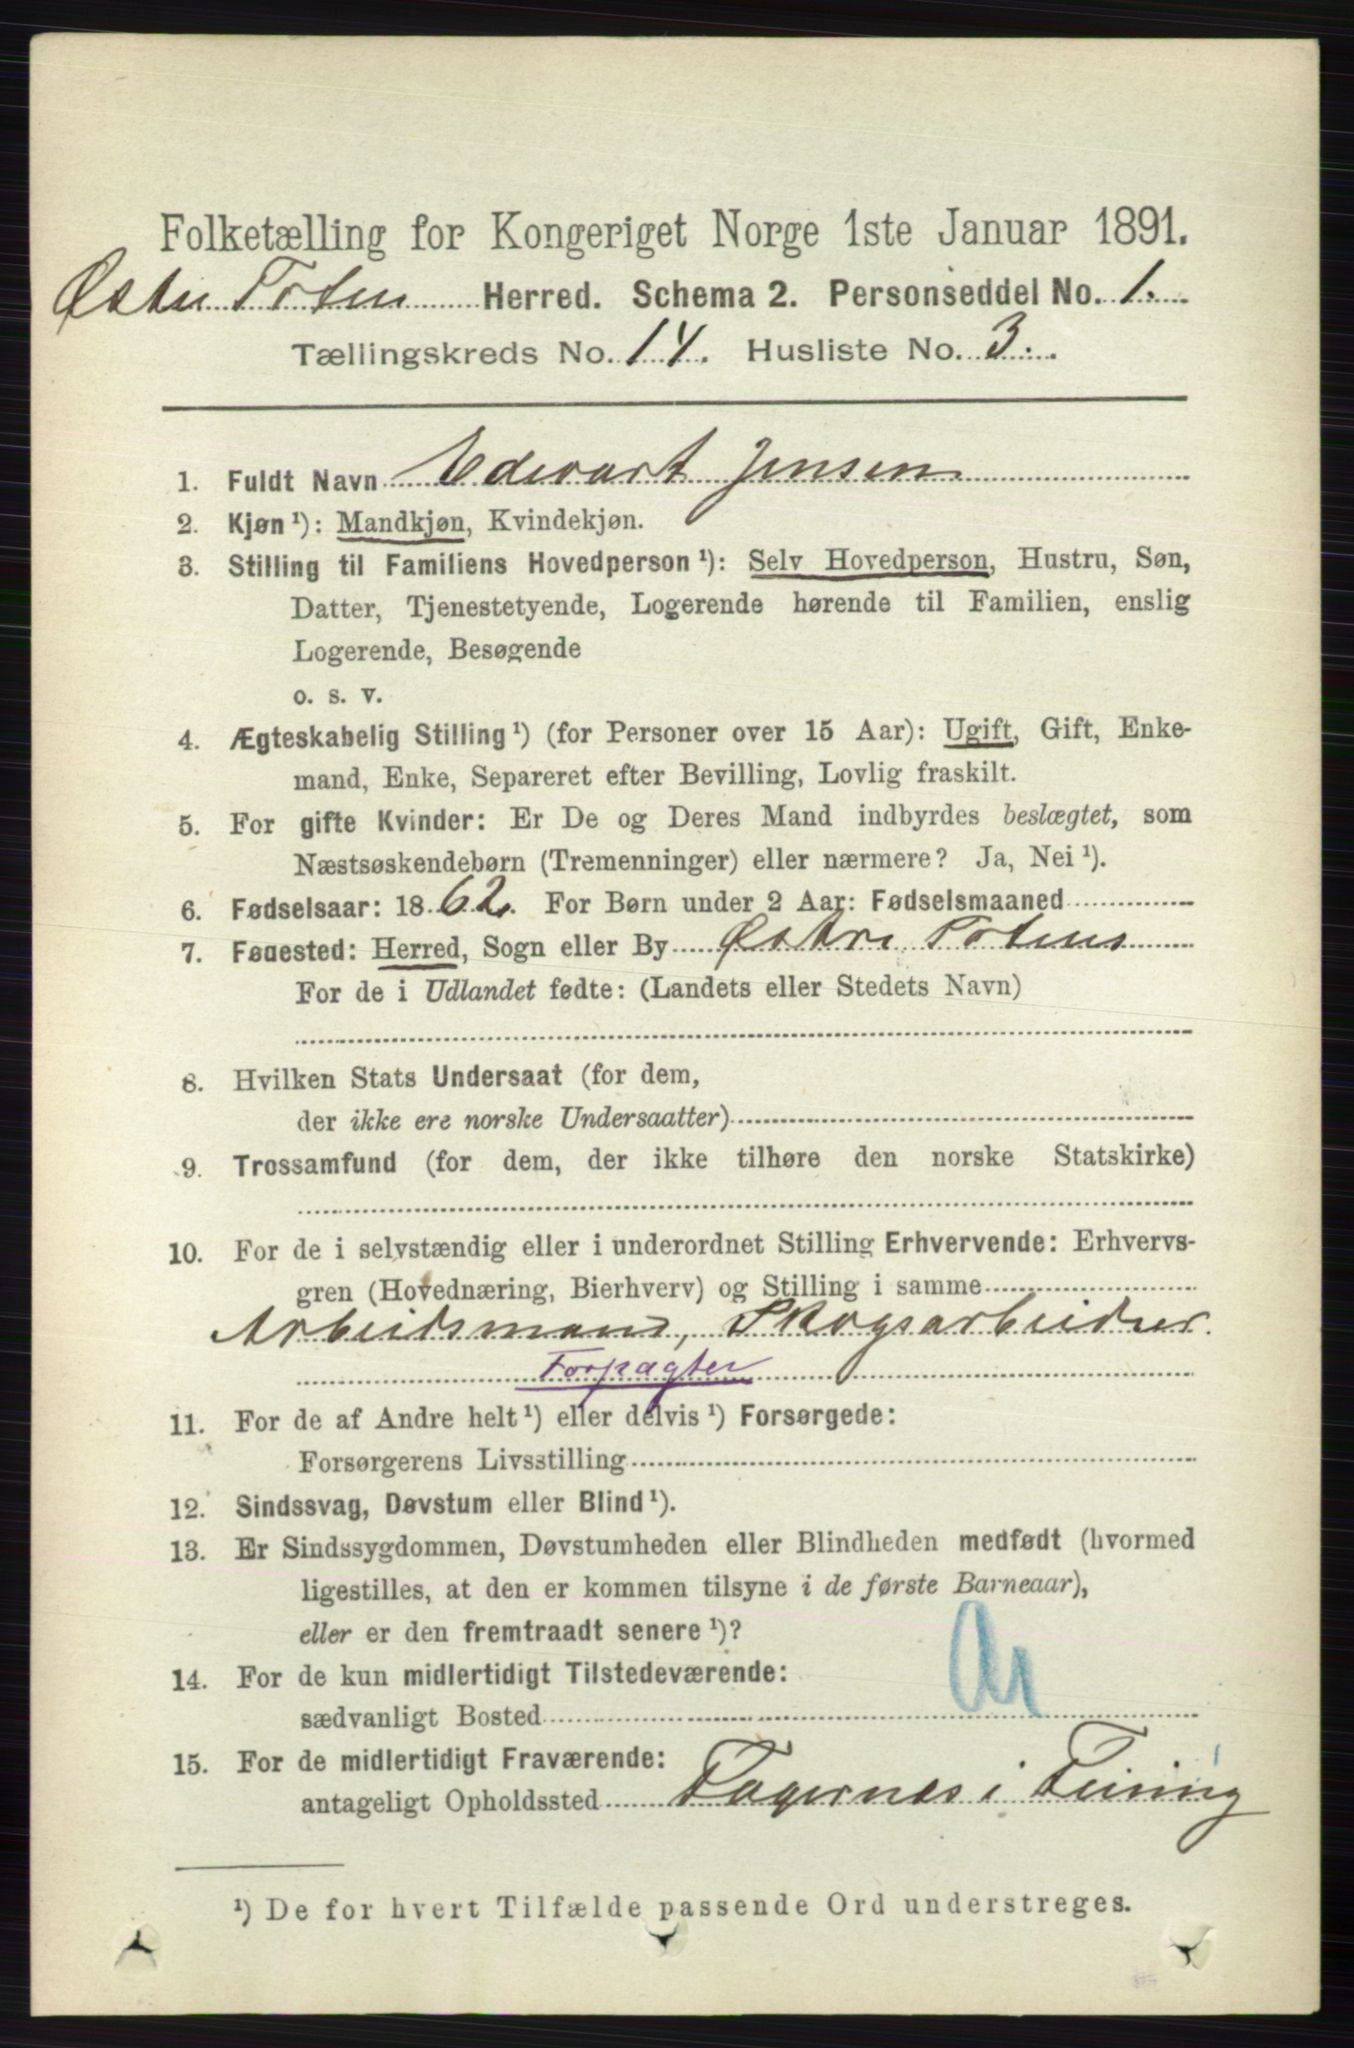 Folketælling for Kongeriget Norge 1ste Januar 1891.
Østre Toten Herred. Schema 2. Personseddel No. 1.
Tællingskreds No. 14. Husliste No. 3.
1. Fuldt Navn Edevart Jensen
2. Kjøn ¹): Mandkjøn, Kvindekjøn.
3. Stilling til Familiens Hovedperson ¹): Selv Hovedperson, Hustru, Søn,
Datter, Tjenestetyende, Logerende hørende til Familien, enslig
Logerende, Besøgende
o. s. v.
4. Ægteskabelig Stilling ¹) (for Personer over 15 Aar): Ugift, Gift, Enke-
mand, Enke, Separeret efter Bevilling, Lovlig fraskilt.
5. For gifte Kvinder: Er De og Deres Mand indbyrdes beslægtet, som
Næstsøskendebørn (Tremenninger) eller nærmere? Ja, Nei ¹).
6. Fødselsaar: 1862. For Børn under 2 Aar: Fødselsmaaned
7. Fødested: Herred, Sogn eller By Østre Totens
For de i Udlandet fødte: (Landets eller Stedets Navn)
8. Hvilken Stats Undersaat (for dem,
der ikke ere norske Undersaatter)
9. Trossamfund (for dem, der ikke tilhøre den norske Statskirke)
10. For de i selvstændig eller i underordnet Stilling Erhvervende: Erhvervs-
gren (Hovednæring, Bierhverv) og Stilling i samme
Arbeidsmand, Skogsarbeider.
Forpagter
11. For de af Andre helt ¹) eller delvis ¹) Forsørgede:
Forsørgerens Livsstilling
12. Sindssvag, Døvstum eller Blind ¹).
13. Er Sindssygdommen, Døvstumheden eller Blindheden medfødt (hvormed
ligestilles, at den er kommen tilsyne i de første Barneaar),
eller er den fremtraadt senere ¹)?
14. For de kun midlertidigt Tilstedeværende:
sædvanligt Bosted
15. For de midlertidigt Fraværende:
antageligt Opholdssted Fagernes i Feiring
¹) De for hvert Tilfælde passende Ord understreges.